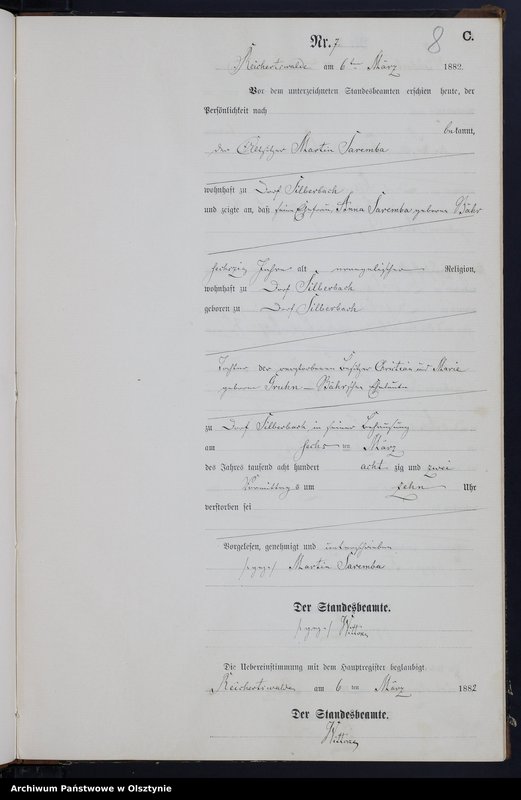 8 C.
Nr. 7
Reichertswalde am 6ten März 1882.
Vor dem unterzeichneten Standesbeamten erschien heute, der
Persönlichkeit nach
bekannt,
der Altsitzer Martin Saremba
wohnhaft zu Dorf Silberbach
und zeigte an, daß seine Ehefrau, Anna Saremba geborene Bähr
Jahre alt evangelischer Religion,
wohnhaft zu Dorf Silberbach
geboren zu Dorf Silberbach
Tochter der verstorbenen Besitzer Christian und Marie
geborene Truhn - Bährschen Eheleute
zu Dorf Silberbach, in seiner Behausung
am sechsten März
des Jahres tausend acht hundert achtzig und zwei
Vormittags um zehn Uhr
verstorben sei
Vorgelesen, genehmigt und unterschrieben
/:gez:/ Martin Saremba
Der Standesbeamte.
/:gez:/
Die Uebereinstimmung mit dem Hauptregister beglaubigt.
Reichertswalde am 6ten März 1882
Der Standesbeamte.
Archiwum Państwowe w Olsztynie